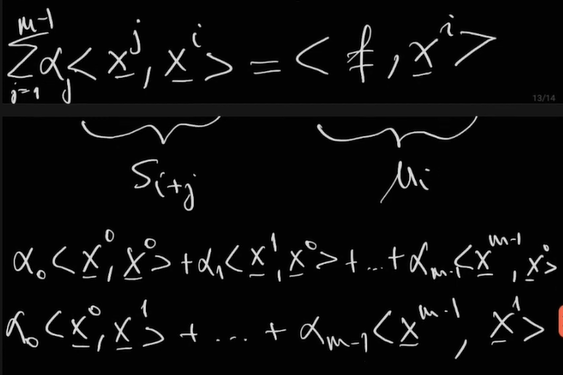 ∑_{j=1}^{m-1} α_j < x̲^j, x̲^i > = < f, x̲^i >
13/14
S_{i+j} μ_i
α_0 < x̲^0, x̲^0 > + α_1 < x̲^1, x̲^0 > + ... + α_{m-1} < x̲^{m-1}, x̲^0 >
α_0 < x̲^0, x̲^1 > + ... + α_{m-1} < x̲^{m-1}, x̲^1 >